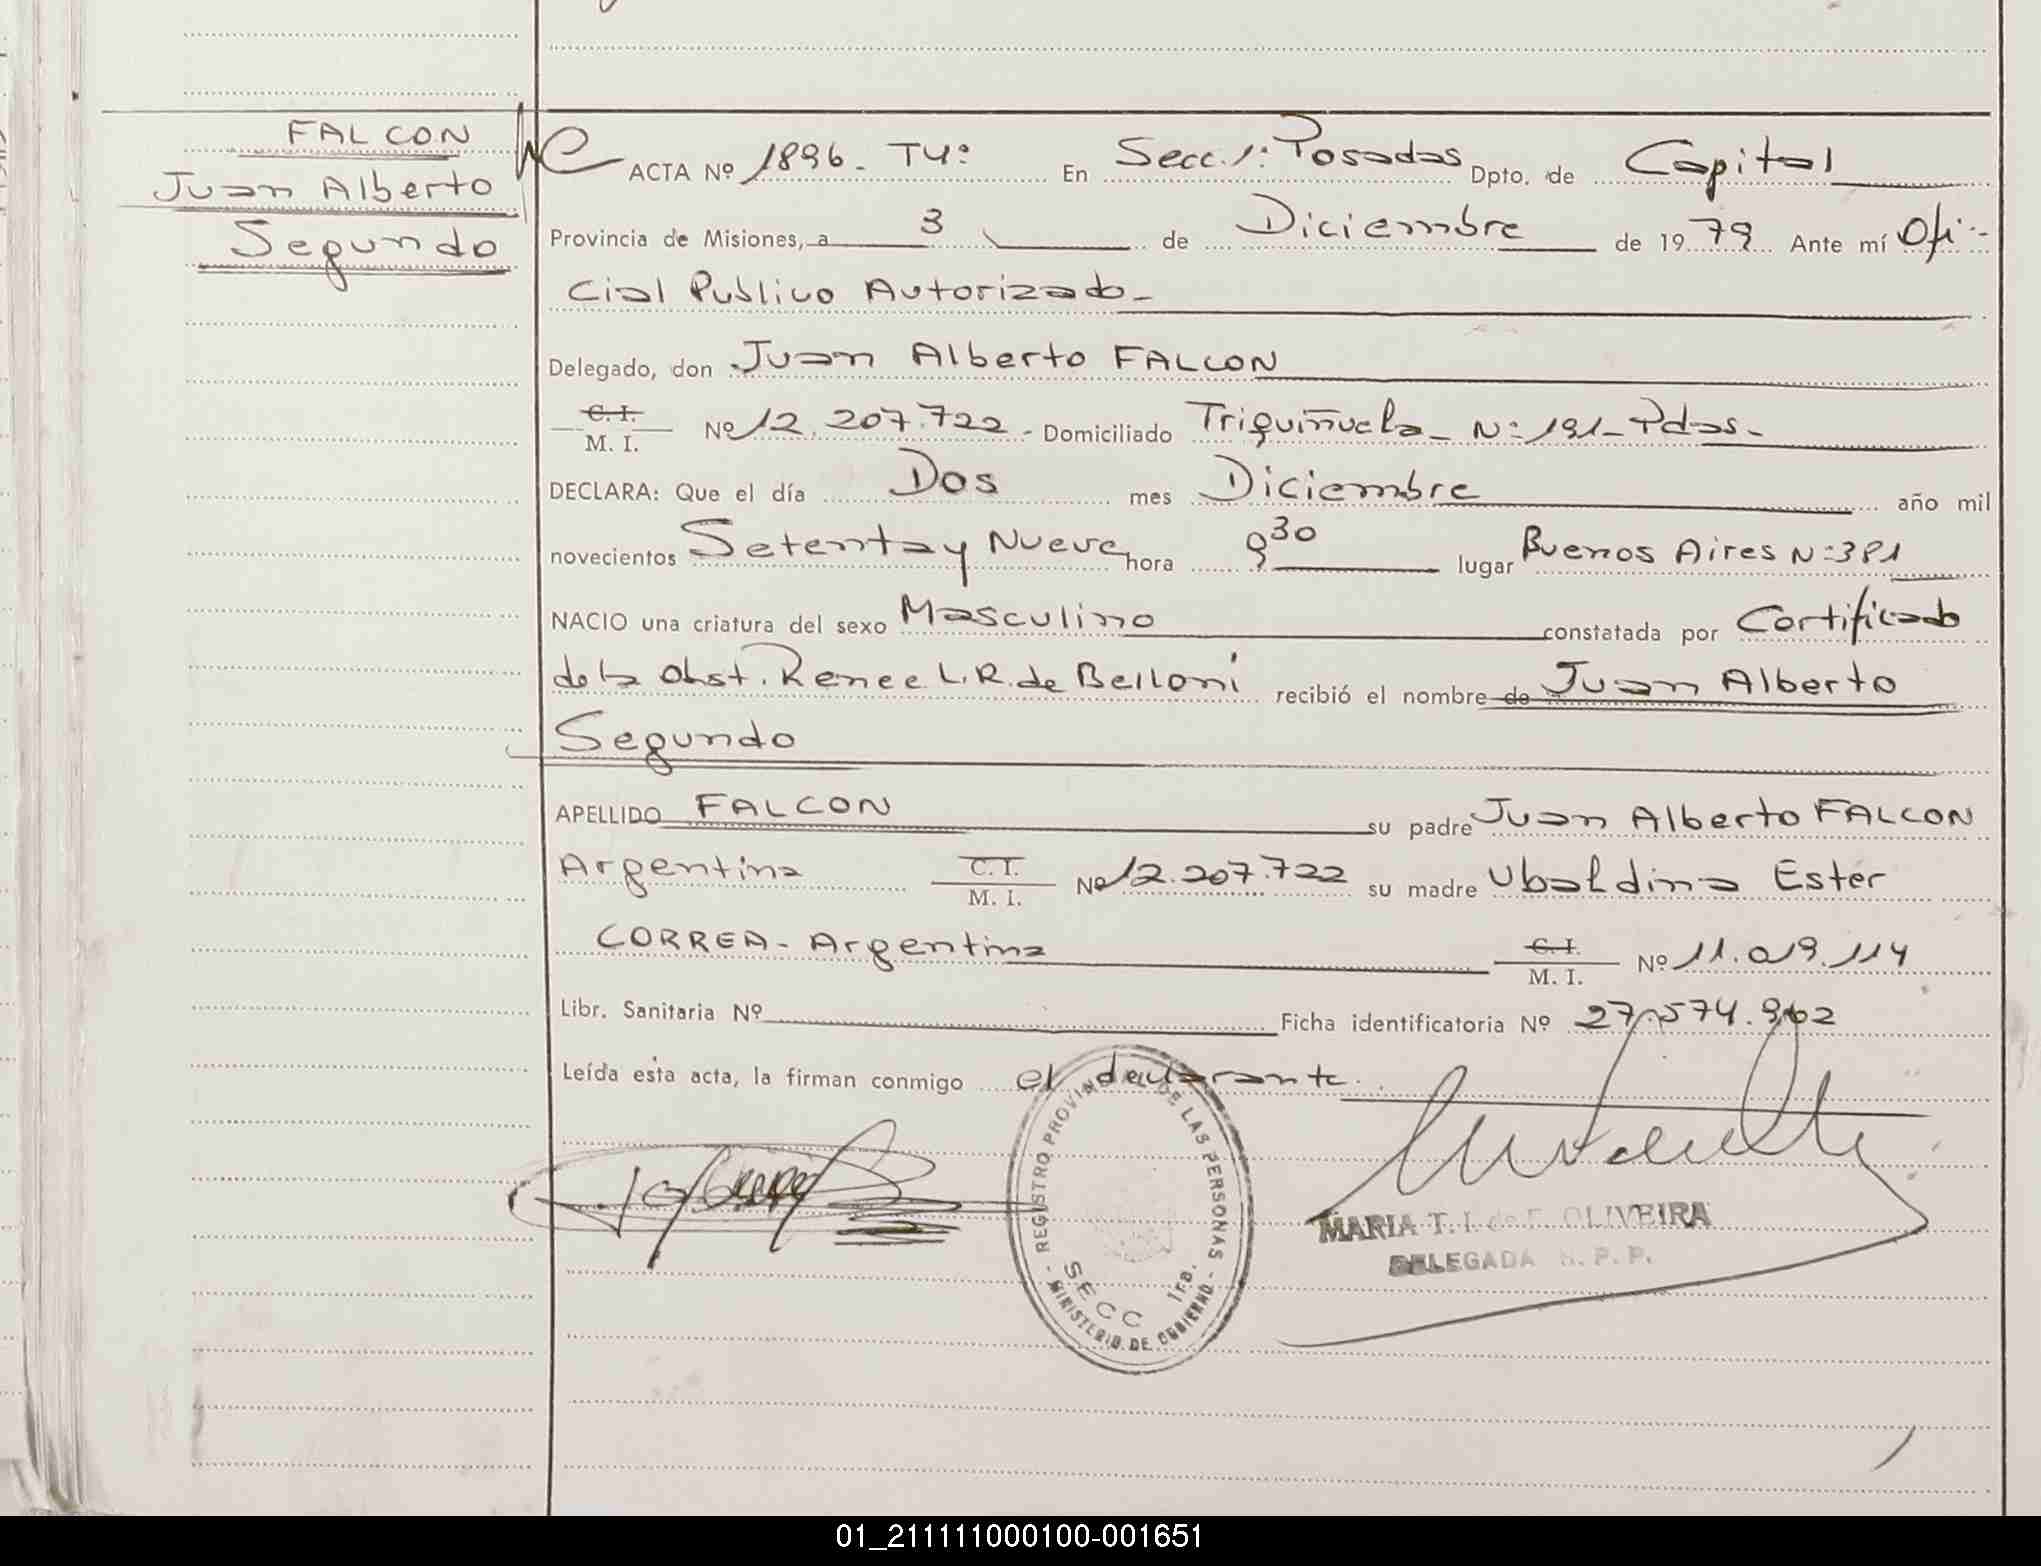 FALCON
Juan Alberto
Segundo
ACTA Nº 1896. T4: En Secc. 1: Posadas Dpto. de Capital
Provincia de Misiones, a 3 de Diciembre de 1979 Ante mí Ofi-
cial Publico Autorizado-
Delegado, don Juan Alberto FALCON
C. I.
M. I. Nº 12.207.722 - Domiciliado Triquiñuela - N: 191 - Pdas -
DECLARA: Que el día Dos mes Diciembre año mil
novecientos Setenta y Nueve hora 9 30 lugar Buenos Aires N: 381
NACIO una criatura del sexo Masculino constatada por Certificado
de la Obst. Renee L.R. de Belloni recibió el nombre de Juan Alberto
Segundo
APELLIDO FALCON su padre Juan Alberto FALCON
Argentina C.I.
M. I. Nº 12.207.722 su madre Ubaldina Ester
CORREA - Argentina C.I.
M. I. Nº 11.019.114
Libr. Sanitaria Nº Ficha identificatoria Nº 27.574.962
Leída esta acta, la firman conmigo el declarante.
REGISTRO PROVINCIAL DE LAS PERSONAS - MINISTERIO DE GOBIERNO -
SECC 1ra.
MARIA T. I. de F. OLIVEIRA
DELEGADA R. P. P.
01_211111000100-001651